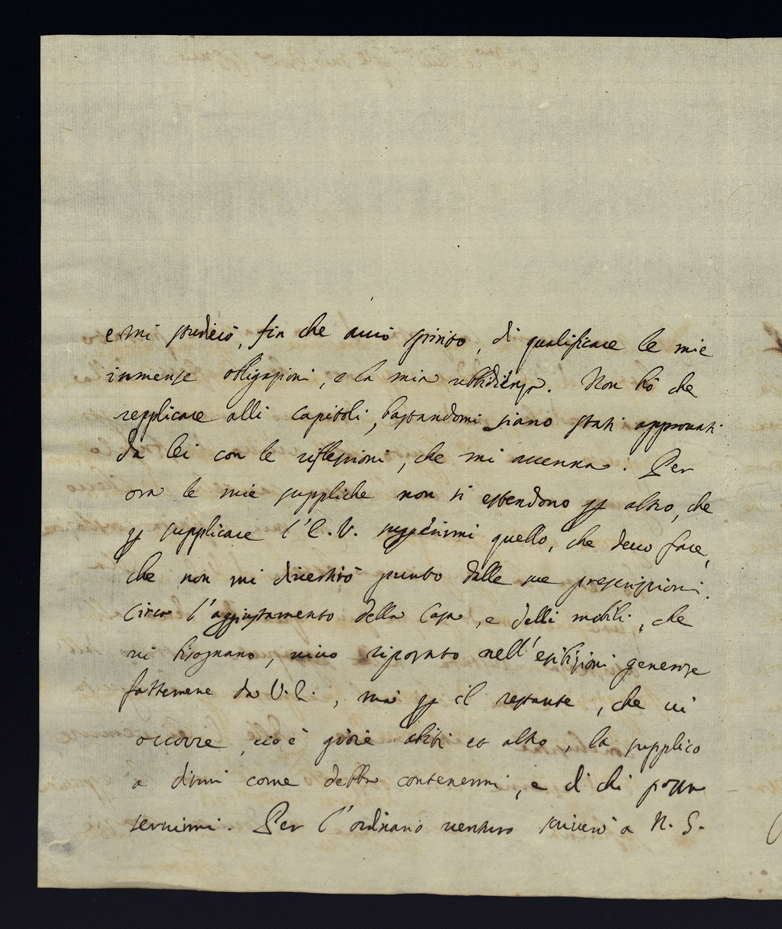 e mi studierò, fin che avrò spirito, di qualificare le mie
immense obligazioni, e la mia ubbidienza. Non hò che
repplicare alli capitoli, bastandomi siano stati approvati
da lei con le riflessioni, che mi accenna. Per
ora le mie suppliche non si estendono ad altro, che
supplicare l'E. V. suggerirmi quello, che devo fare,
che non mi divertirò punto dalle sue prescrizioni.
Circa l'aggiustamento della Casa, e delli mobili, che
vi bisognano, vivo riposato nell'esibizioni generose
fattemene da V. E., mà il restante, che vi
occorre, cioè gioie abiti et altro, la supplico
a dirmi come debba contenermi, e di chi possa
servirmi. Per l'ordinario venturo scriverò a N. S.